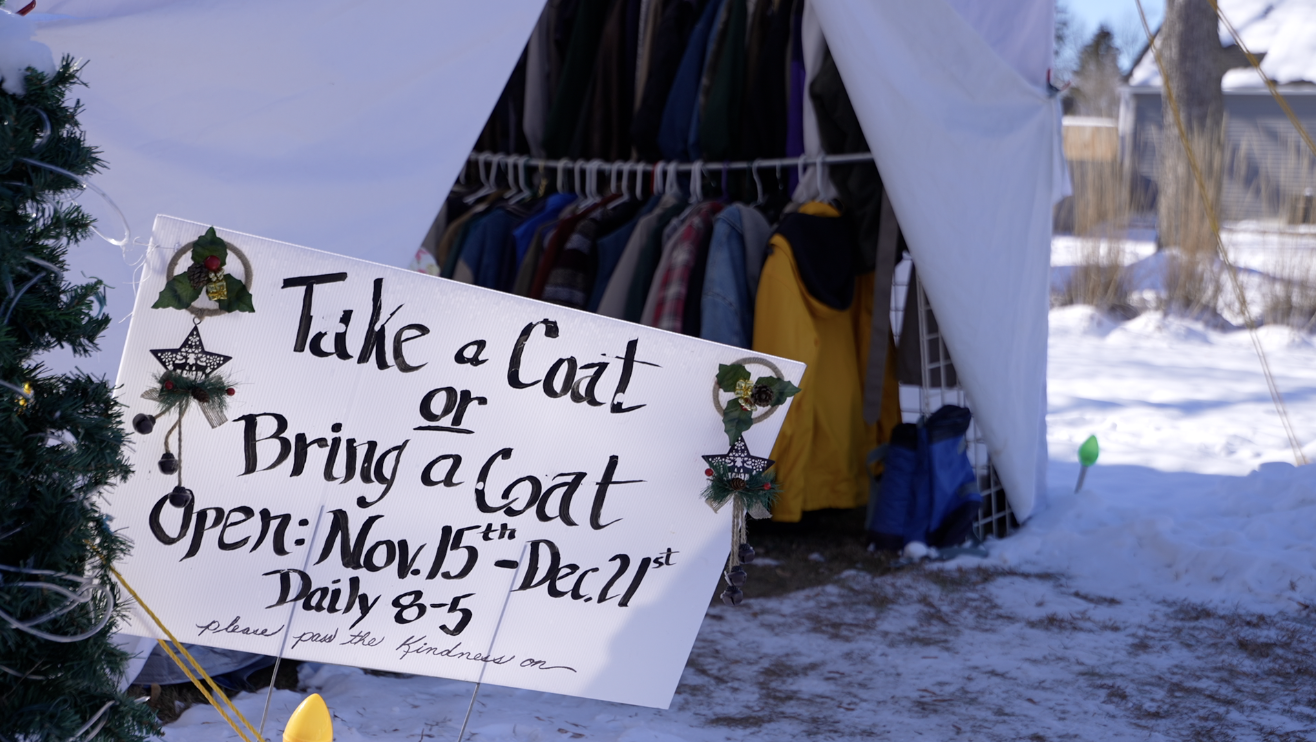 Take a Coat
or
Bring a Coat
Open: Nov. 15th - Dec. 21st
Daily 8-5
please pass the Kindness on